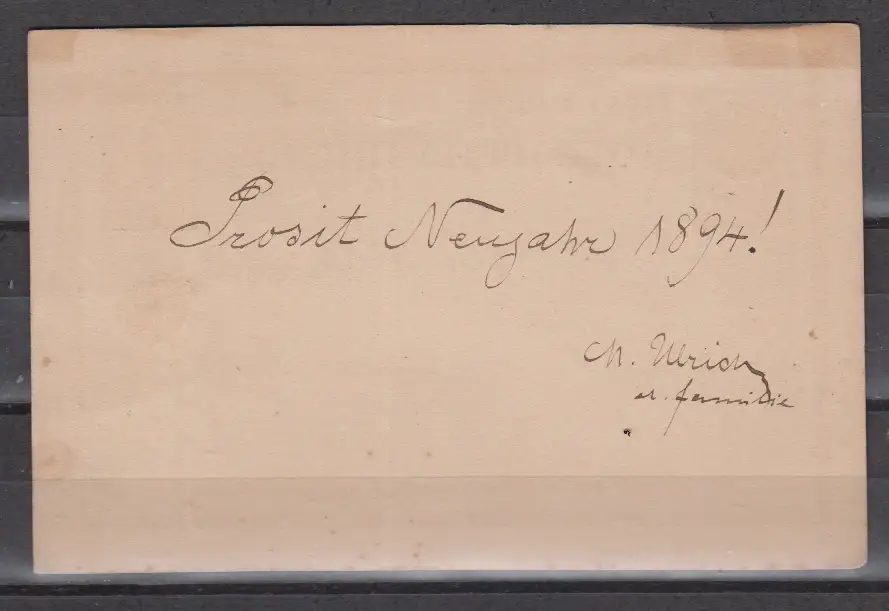 Prosit Neujahr 1894!
M. Ulrich
u. familie